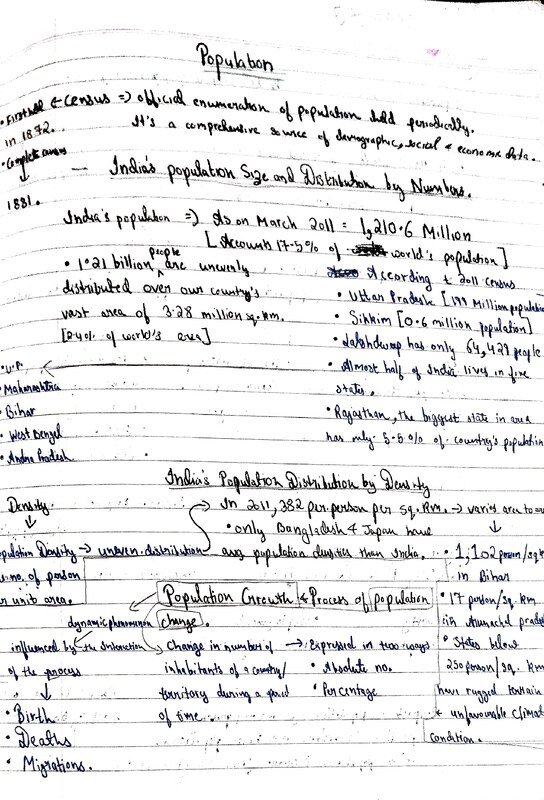 Population
• First held ← Census => official enumeration of population held periodically.
in 1872. It's a comprehensive source of demographic, social & economic data.
• Complete census
↓
1881.
— India's population Size and Distribution by Numbers.
India's population => As on March 2011 = 1,210.6 Million
[Accounts 17.5% of world's population]
• 1.21 billion people are unevenly
distributed over our country's
vast area of 3.28 million sq.km.
[2.4% of world's area]
According to 2011 census
• Uttar Pradesh [199 Million population
• Sikkim [0.6 million population]
• Lakshdweep has only 64,429 people
• Almost half of India lives in five
states.
• Rajasthan, the biggest state in area
has only 5.5% of country's population
• U.P.
• Maharashtra
• Bihar
• West Bengal
• Andra Pradesh
India's Population Distribution by Density
Density
↓
opulation Density → uneven distribution
no. of person
unit area.
→ In 2011, 382 per person per sq.km. → varies area to
• only Bangladesh & Japan have
avg population densities than India.
↓
• 1,102 person/sq k
in Bihar
• 17 person/sq. km
in Arunachal prade
• States below
250 person/sq. km
have rugged terrain
& unfavourable climat
condition.
Population Growth & Process of population
change.
dynamic phenomenon
influenced by the interaction
of the process
↓
• Birth
• Deaths
• Migrations.
Change in number of
inhabitants of a country/
territory during a period
of time
→ Expressed in two ways
• Absolute no.
• Percentage